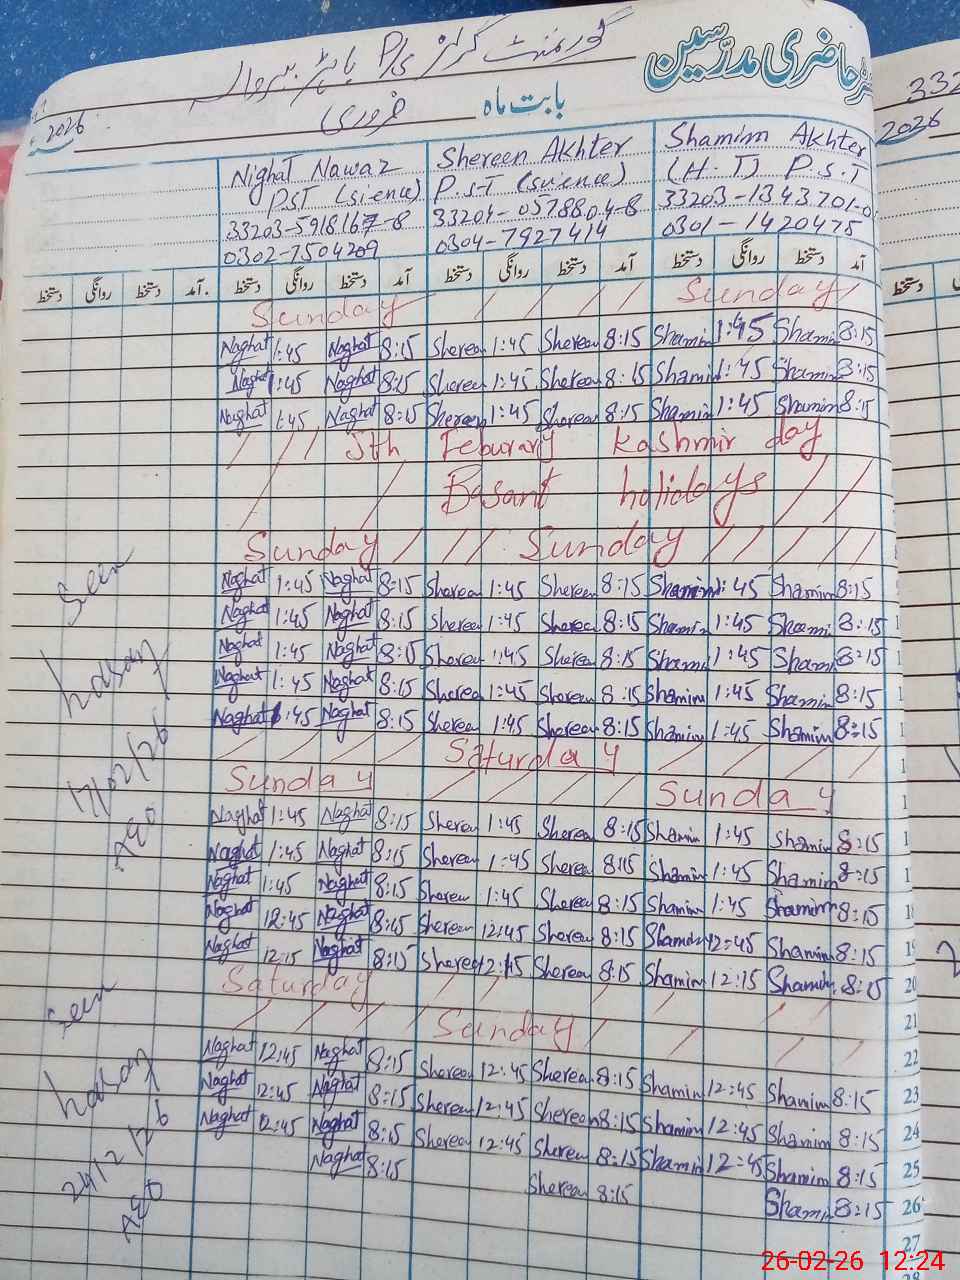 رجسٹر حاضری مدرّسین
گورنمنٹ گرلز P/S
بابت ماہ فروری 2026
332
2026
Nighat Nawaz
PST (sience)
33203-5918167-8
0302-7504209
Shereen Akhter
P.S.T (science)
33204-0578804-8
0304-7927414
Shamim Akhter
(H.T) P.S.T
33203-1343701-0
0301-1420475
دستخط روانگی دستخط آمد دستخط روانگی دستخط آمد دستخط روانگی دستخط آمد دستخط روانگی دستخط آمد
Sunday Sunday
Naghat 1:45 Naghat 8:15 Shereen 1:45 Shereen 8:15 Shamim 1:45 Shamim 8:15
Naghat 1:45 Naghat 8:15 Shereen 1:45 Shereen 8:15 Shamim 1:45 Shamim 8:15
Naghat 1:45 Naghat 8:15 Shereen 1:45 Shereen 8:15 Shamim 1:45 Shamim 8:15
5th Feburary Kashmir day
Basant holidays
Sunday Sunday
Naghat 1:45 Naghat 8:15 Shereen 1:45 Shereen 8:15 Shamim 1:45 Shamim 8:15
Naghat 1:45 Naghat 8:15 Shereen 1:45 Shereen 8:15 Shamim 1:45 Shamim 8:15
Naghat 1:45 Naghat 8:15 Shereen 1:45 Shereen 8:15 Shamim 1:45 Shamim 8:15
Naghat 1:45 Naghat 8:15 Shereen 1:45 Shereen 8:15 Shamim 1:45 Shamim 8:15
Naghat 1:45 Naghat 8:15 Shereen 1:45 Shereen 8:15 Shamim 1:45 Shamim 8:15
Saturday
Sunday Sunday
Naghat 1:45 Naghat 8:15 Shereen 1:45 Shereen 8:15 Shamim 1:45 Shamim 8:15
Naghat 1:45 Naghat 8:15 Shereen 1:45 Shereen 8:15 Shamim 1:45 Shamim 8:15
Naghat 1:45 Naghat 8:15 Shereen 1:45 Shereen 8:15 Shamim 1:45 Shamim 8:15 18
Naghat 12:45 Naghat 8:15 Shereen 12:45 Shereen 8:15 Shamim 12:45 Shamim 8:15 19
Naghat 12:15 Naghat 8:15 Shereen 12:15 Shereen 8:15 Shamim 12:15 Shamim 8:15 20
Saturday 21
Sunday 22
Naghat 12:45 Naghat 8:15 Shereen 12:45 Shereen 8:15 Shamim 12:45 Shamim 8:15 23
Naghat 12:45 Naghat 8:15 Shereen 12:45 Shereen 8:15 Shamim 12:45 Shamim 8:15 24
Naghat 12:45 Naghat 8:15 Shereen 12:45 Shereen 8:15 Shamim 12:45 Shamim 8:15 25
Naghat 8:15 Shereen 8:15 Shamim 8:15 26
27
28
Seen
17/02/26
AEO
Seen
24/2/26
AEO
26-02-26 12:24